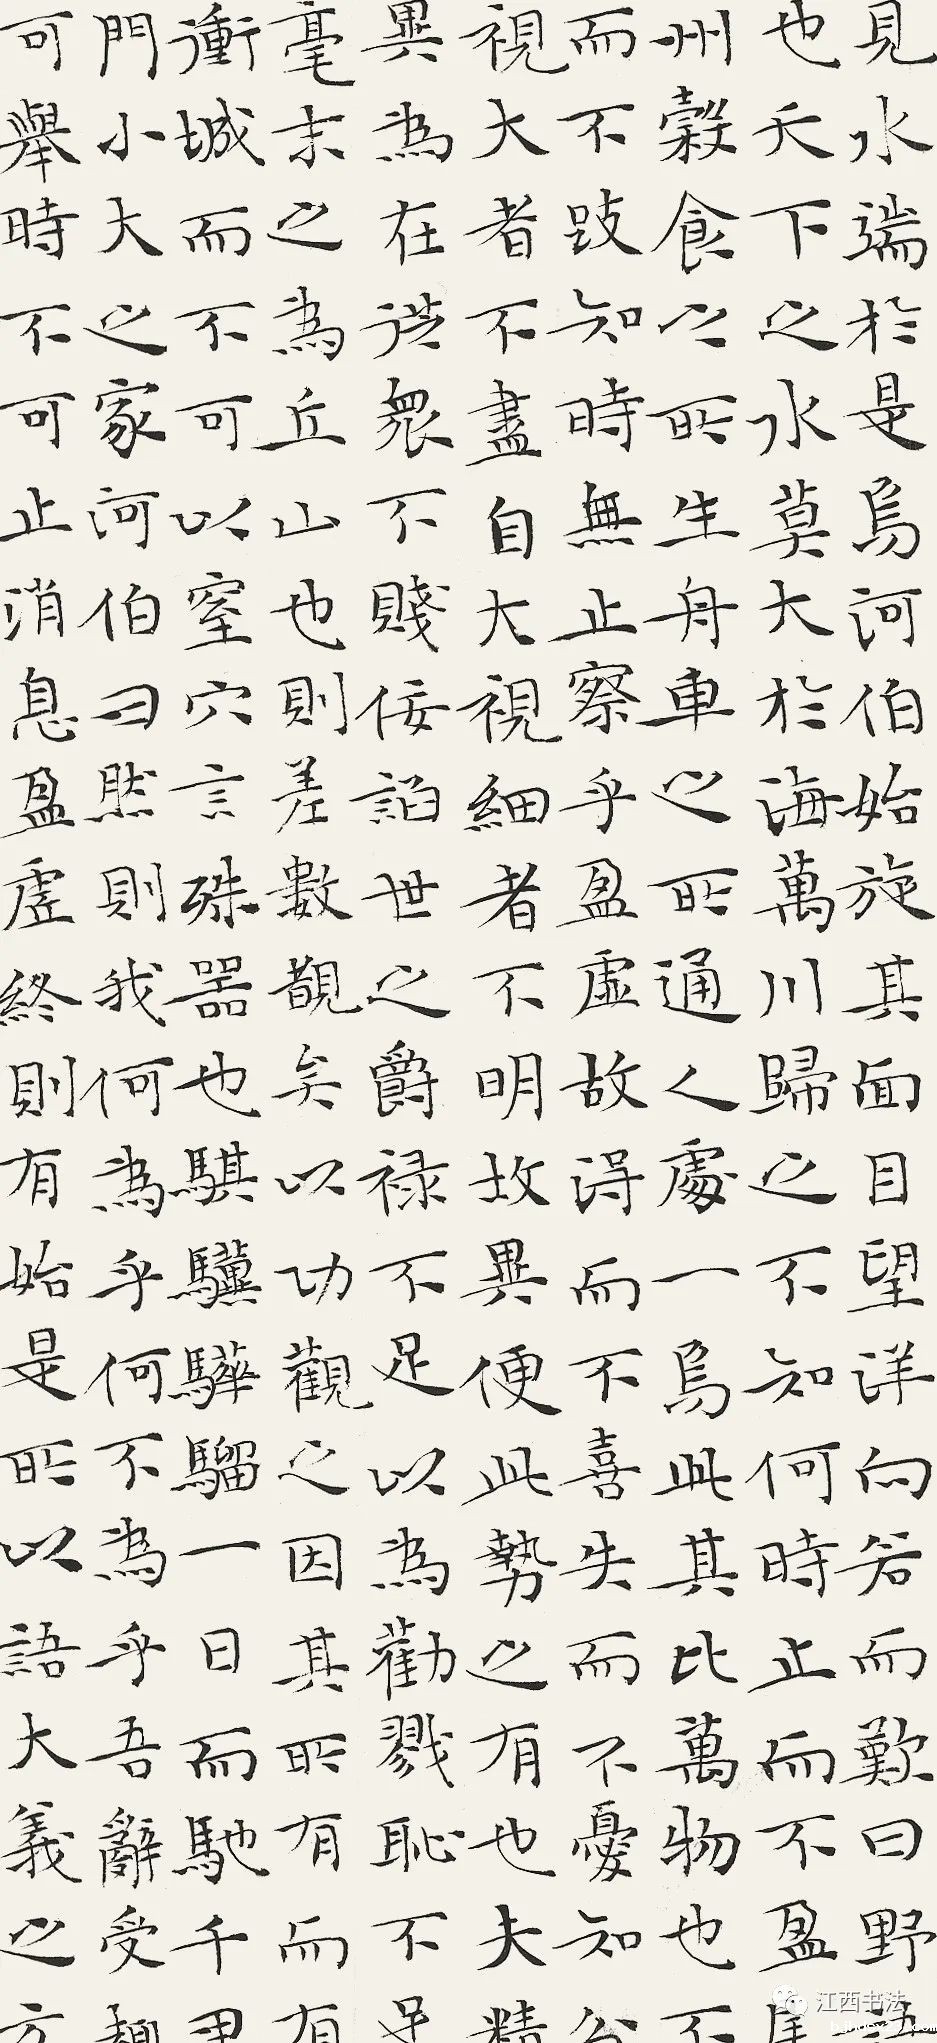 見水端於是焉河伯始旋其面目望洋向若而歎曰野
也天下之水莫大於海萬川歸之不知何時止而不盈
州穀食之所生舟車之所通人處一焉此其比萬物也不
而不跂知時無止察乎盈虛故得而不喜失而不憂知分
視大者不盡自大視細者不明故異便此勢之有也夫精
異為在從衆不賤佞諂世之爵禄不足以為勸戮恥不足
毫末之為丘山也則差數覩矣以功觀之因其所有而有
衝城而不可以窒穴言殊器也騏驥驊騮一日而馳千里
門小大之家河伯曰然則我何為乎何不為乎吾辭受趣
可舉時不可止消息盈虛終則有始是所以語大義之方
江西书法